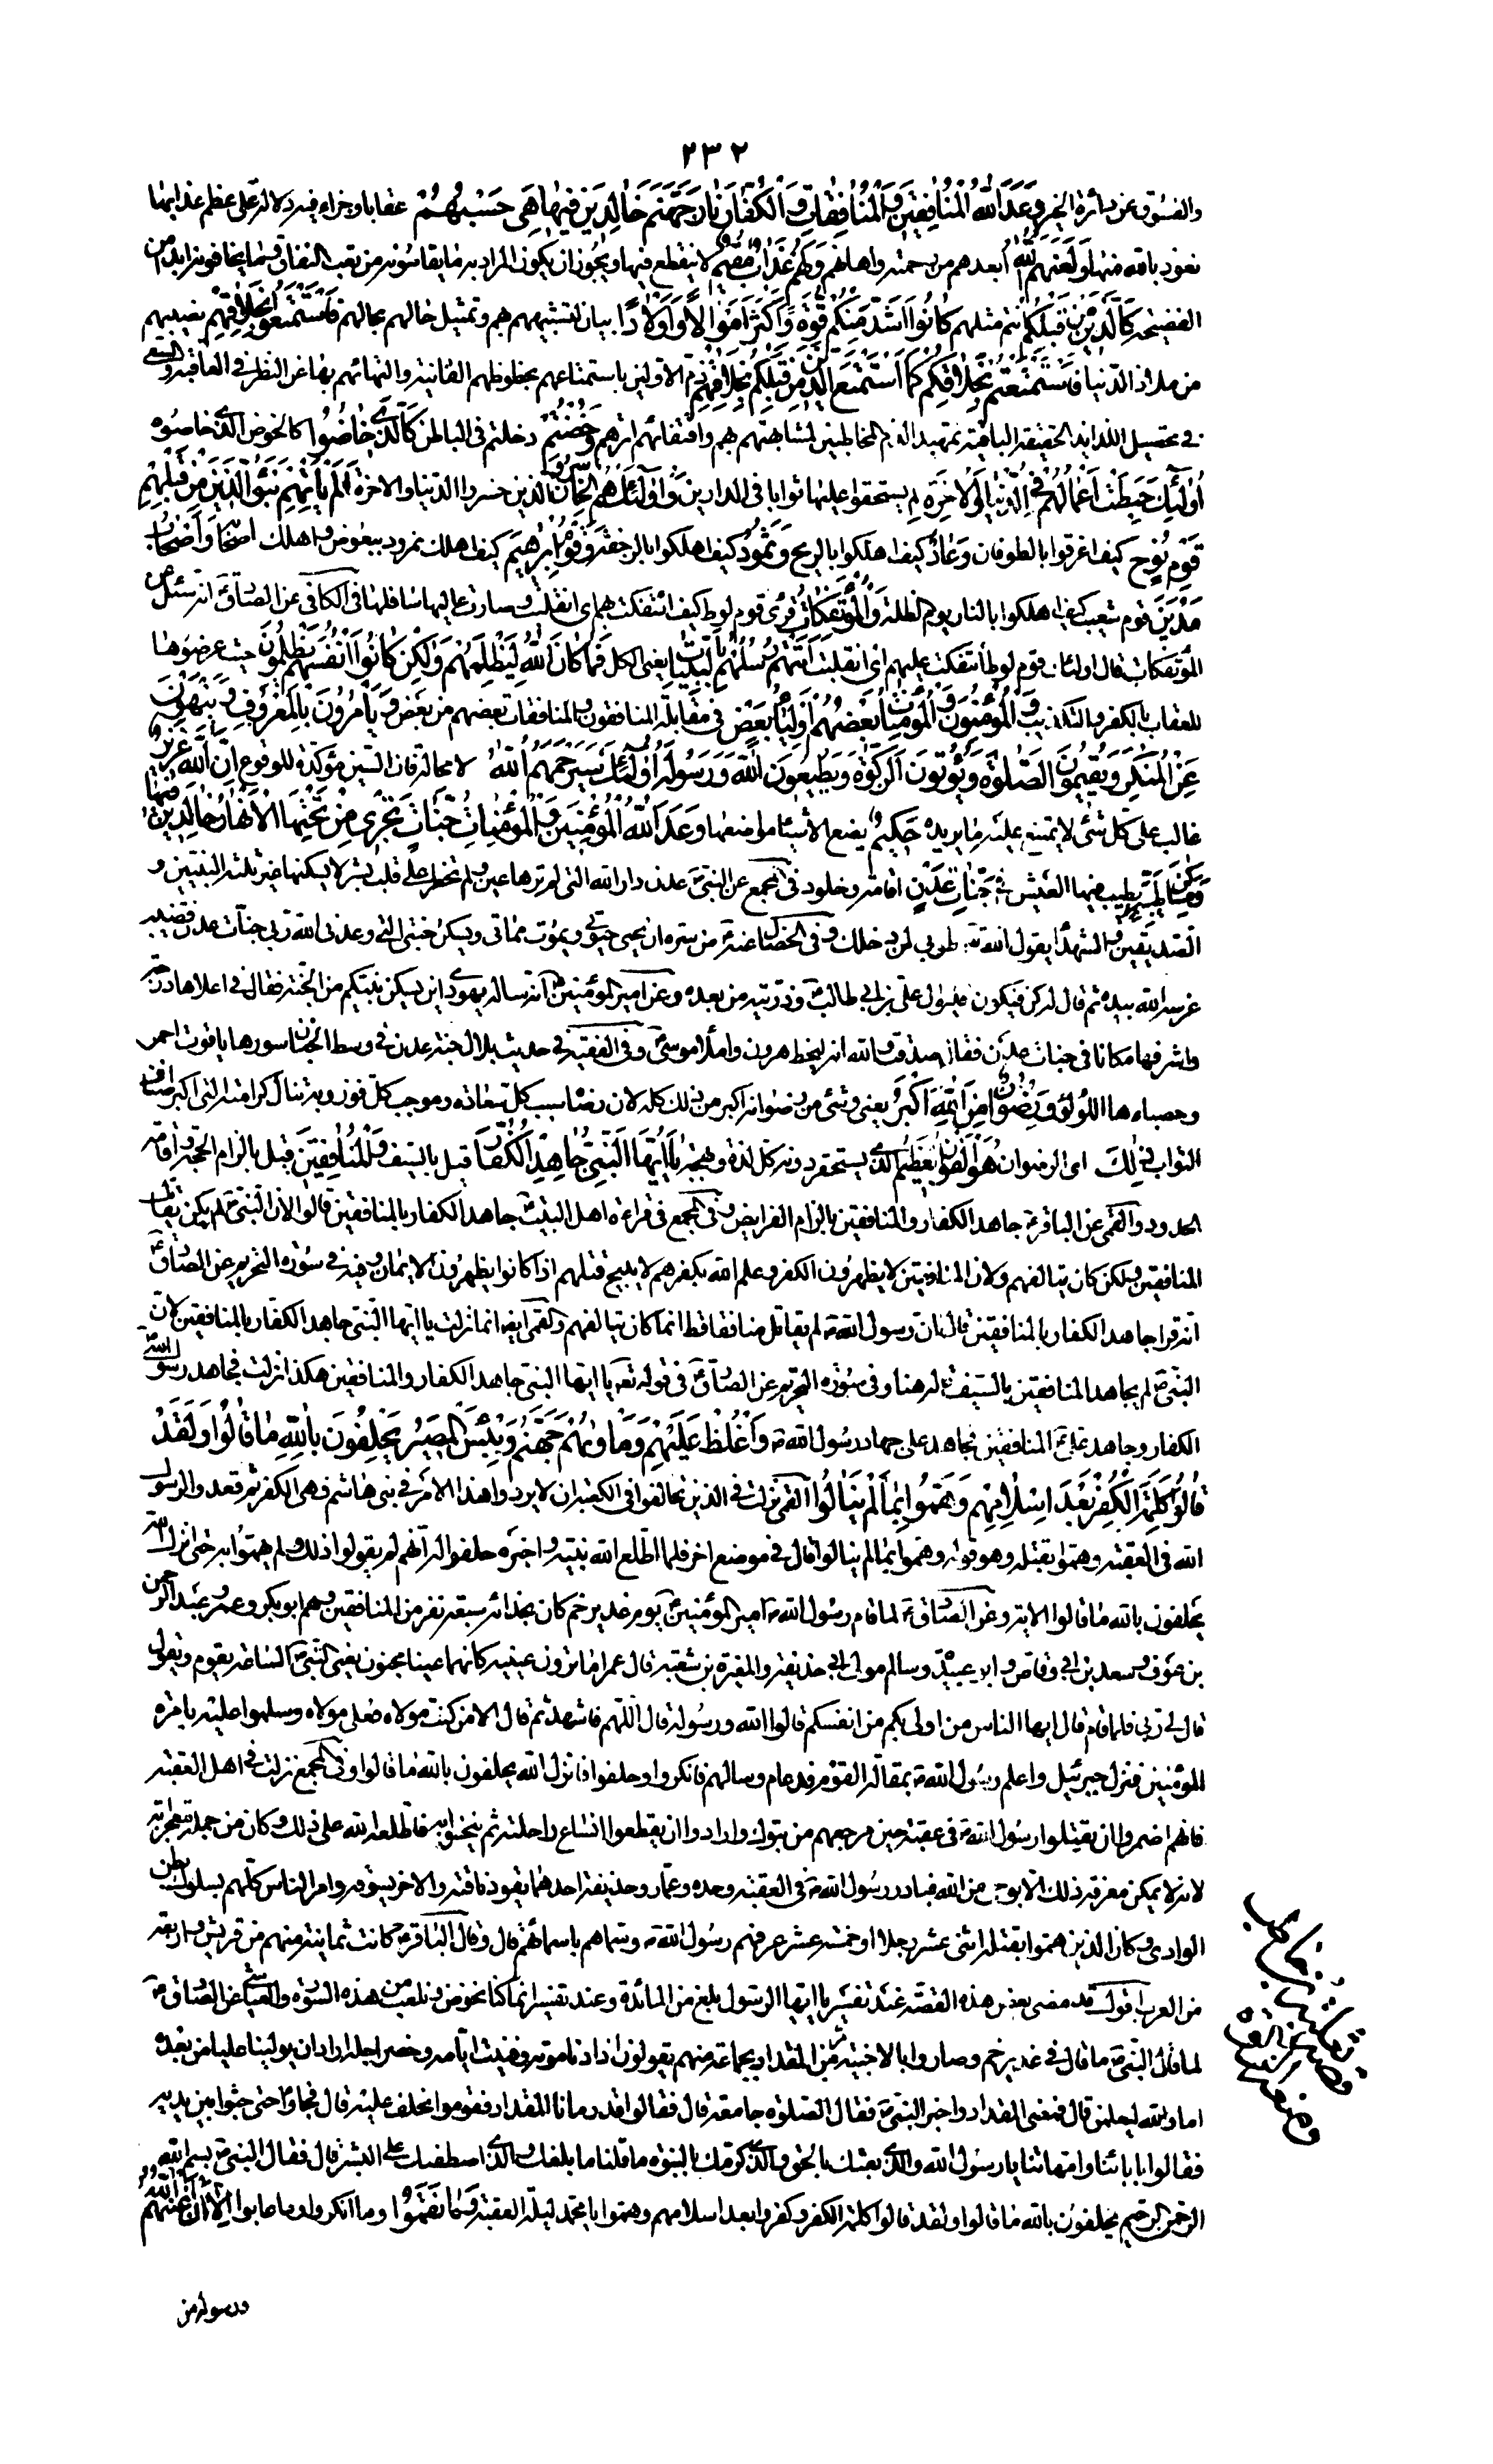 ٢٣٢
والفسوق عن دائرة الخير وَعَدَ اللهُ الْمُنافِقينَ وَالْمُنافِقاتِ وَالْكُفّارَ نارَ جَهَنَّمَ خالِدينَ فيها هِيَ حَسْبُهُمْ عقابا وجزاء فيه دلالة على عظم عذابها
نعوذ بالله منها وَلَعَنَهُمُ اللهُ أبعدهم من رحمته واهانهم وَلَهُمْ عَذابٌ مُقيمٌ لا ينقطع فيها ويجوز ان يكون المراد به ما يقاسونه من تعب النفاق وما يخافونه ابدا من
الفضيحة كَالَّذينَ مِنْ قَبْلِكُمْ انتم مثلهم كانُوا اَشَدَّ مِنْكُمْ قُوَّةً وَاَكْثَرَ اَمْوالاً وَاَوْلاداً بيان لتشبيههم بهم وتمثيل حالهم بحالهم فَاسْتَمْتَعُوا بِخَلاقِهِمْ نصيبهم
من ملاذ الدنيا فَاسْتَمْتَعْتُمْ بِخَلاقِكُمْ كَمَا اسْتَمْتَعَ الَّذينَ مِنْ قَبْلِكُمْ بِخَلاقِهِمْ ذم الاولين باستمتاعهم بحظوظهم الفانية والتهائهم بها عن النظر في العاقبة والسعي
في تحصيل اللذايذ الحقيقة الباقية تمهيدا لذم المخاطبين لمشابهتهم بهم واقتفائهم اثرهم وَخُضْتُمْ دخلتم في الباطل كَالَّذي خاضُوا كالخوض الذي خاضوه
اُولٰئِكَ حَبِطَتْ اَعْمالُهُمْ فِي الدُّنْيا وَالْاٰخِرَةِ لم يستحقوا عليها ثوابا في الدارين وَاُولٰئِكَ هُمُ الْخاسِرُونَ الذين خسروا الدنيا والاخرة اَلَمْ يَأْتِهِمْ نَبَؤُا الَّذينَ مِنْ قَبْلِهِمْ
قَوْمِ نُوحٍ كيف اغرقوا بالطوفان وَعادٍ كيف اهلكوا بالريح وَثَمُودَ كيف اهلكوا بالرجفة وَقَوْمِ اِبْرٰهيمَ كيف اهلك نمرود ببعوض واهلك اصحابه وَاَصْحابِ
مَدْيَنَ قوم شعيب كيف اهلكوا بالنار يوم الظلة وَالْمُؤْتَفِكاتِ قرى قوم لوط كيف ائتفكت بهم اي انقلبت وصارت عاليها سافلها في الكافي عن الصادق ع انه سئل عن
المؤتفكات قال اولئك قوم لوط ائتفكت عليهم اي انقلبت اَتَتْهُمْ رُسُلُهُمْ بِالْبَيِّناتِ يعني الكل فَما كانَ اللهُ لِيَظْلِمَهُمْ وَلٰكِنْ كانُوا اَنْفُسَهُمْ يَظْلِمُونَ حيث عرضوها
للعقاب بالكفر والتكذيب وَالْمُؤْمِنُونَ وَالْمُؤْمِناتُ بَعْضُهُمْ اَوْلِياءُ بَعْضٍ في مقابلة المنافقون والمنافقات بعضهم من بعض يَأْمُرُونَ بِالْمَعْرُوفِ وَيَنْهَوْنَ
عَنِ الْمُنْكَرِ وَيُقيمُونَ الصَّلٰوةَ وَيُؤْتُونَ الزَّكٰوةَ وَيُطيعُونَ اللهَ وَرَسُولَهُ اُولٰئِكَ سَيَرْحَمُهُمُ اللهُ لا محالة فان السين مؤكدة للوقوع اِنَّ اللهَ عَزيزٌ
غالب على كل شيء لا يمتنع عليه ما يريده حَكيمٌ يضع الاشياء مواضعها وَعَدَ اللهُ الْمُؤْمِنينَ وَالْمُؤْمِناتِ جَنّاتٍ تَجْري مِنْ تَحْتِهَا الْاَنْهارُ خالِدينَ فيها
وَمَساكِنَ طَيِّبَةً يطيب فيها العيش في جَنّاتِ عَدْنٍ اقامة وخلود في المجمع عن النبي ص عدن دار الله التي لم ترها عين ولم تخطر على قلب بشر لا يسكنها غير ثلثة النبيين و
الصديقين والشهداء يقول الله تع طوبى لمن دخلك وفي الخصال عنه ص من سره ان يحيى حيوتي ويموت مماتي ويسكن جنتي التي وعدني الله ربي جنات عدن قضيب
غرسه الله بيده ثم قال له كن فيكون فليتول علي بن ابي طالب ع وذريته من بعده وعن امير المؤمنين ع انه سأله يهودي اين يسكن نبيكم من الجنة فقال في اعلاها درجة
واشرفها مكانا في جنات عدن فقال صدقت والله انه لبخط هرون واملاء موسى وفي الفقيه في حديث بلال جنة عدن في وسط الجنان سورها ياقوت احمر
وحصباءها اللؤلؤ وَرِضْوانٌ مِنَ اللهِ اَكْبَرُ يعني وشيء من رضوانه اكبر من ذلك كله لان رضاه سبب كل سعادة وموجب كل فوز وبه تنال كرامته التي اكبر اصناف
الثواب ذٰلِكَ اي الرضوان هُوَ الْفَوْزُ الْعَظيمُ الذي يستحقر دونه كل لذة وبهجة يا اَيُّهَا النَّبِيُّ جاهِدِ الْكُفّارَ قيل بالسيف وَالْمُنافِقينَ قيل بالزام الحجة واقامة
الحدود والقمي عن الباقر ع جاهد الكفار والمنافقين بالزام الفرايض وفي المجمع في قراءة اهل البيت ع جاهد الكفار بالمنافقين قالوا لان النبي ص لم يكن يقاتل
المنافقين ولكن كان يتالفهم ولان المنافقين لا يظهرون الكفر وعلم الله بكفرهم لا يبيح قتلهم اذا كانوا يظهرون الايمان وفيه في سورة التحريم عن الصادق ع
انه قرا جاهد الكفار بالمنافقين قال ان رسول الله ص لم يقاتل منافقا قط انما كان يتالفهم والقمي ايضا انما نزلت يا ايها النبي جاهد الكفار بالمنافقين لان
النبي ص لم يجاهد المنافقين بالسيف قاله هنا وفي سورة التحريم عن الصادق ع في قوله تع يا ايها النبي جاهد الكفار والمنافقين هكذا نزلت فجاهد رسول الله ص
الكفار وجاهد علي ع المنافقين فجاهد علي جهاد رسول الله ص وَاغْلُظْ عَلَيْهِمْ وَمَأْوٰيهُمْ جَهَنَّمُ وَبِئْسَ الْمَصيرُ يَحْلِفُونَ بِاللهِ ما قالُوا وَلَقَدْ
قالُوا كَلِمَةَ الْكُفْرِ وَكَفَرُوا بَعْدَ اِسْلامِهِمْ وَهَمُّوا بِما لَمْ يَنالُوا القمي نزلت في الذين تحالفوا في الكعبة ان لا يردوا هذا الامر في بني هاشم فهي كلمة الكفر ثم قعدوا لرسول
الله في العقبة وهموا بقتله وهو قوله وهموا بما لم ينالوا قال في موضع اخر فلما اطلع الله نبيه واخبره حلفوا له انهم لم يقولوا ذلك ولم يهموا به حتى انزل الله
يحلفون بالله ما قالوا الاية وعن الصادق ع لما اقام رسول الله ص امير المؤمنين ع يوم غدير خم كان بحذائه سبعة نفر من المنافقين وهم ابو بكر وعمر وعبد الرحمن
بن عوف وسعد بن ابي وقاص وابو عبيدة وسالم مولى ابي حذيفة والمغيرة بن شعبة قال عمر اما ترون عينيه كانهما عينا مجنون يعني النبي ص الساعة يقوم ويقول
قال لي ربي فلما قام قال ايها الناس من اولى بكم من انفسكم قالوا الله ورسوله قال اللهم فاشهد ثم قال الا من كنت مولاه فعلي مولاه وسلموا عليه بامرة
المؤمنين فنزل جبرئيل واعلم رسول الله ص بمقالة القوم فدعاهم وسالهم فانكروا وحلفوا فانزل الله يحلفون بالله ما قالوا وفي المجمع نزلت في اهل العقبة
فانهم اضمروا ان يقتلوا رسول الله ص في عقبة حين مرجعهم من تبوك وارادوا ان يقطعوا انساع راحلته ثم ينخسوا به فاطلعه الله على ذلك وكان من جملة معجزاته
لانه لا يمكن معرفة ذلك الا بوحي من الله فبادر رسول الله ص في العقبة وحده وعمار وحذيفة احدهما يقود ناقته والاخر يسوقها وامر الناس كلهم بسلوك بطن
الوادي وكان الذين هموا بقتله اثنى عشر رجلا او خمسة عشر عرفهم رسول الله ص وسماهم باسمائهم قال وقال الباقر ع كانت ثمانية منهم من قريش واربعة
من العرب اقول قد مضى بعض هذه القصة عند تفسير يا ايها الرسول بلغ من المائدة وعند تفسير انما كنا نخوض ونلعب من هذه السورة والعياشي عن الصادق ع
لما قال النبي ص ما قال في غدير خم وصاروا بالاخبية مر المقداد بجماعة منهم يقولون اذا دنا موته وفنيت ايامه وحضر اجله اراد ان يولينا عليا من بعده
اما والله ليعلمن قال فمضى المقداد واخبر النبي ص فقال الصلوة جامعة قال فقالوا قد رمانا المقداد فقوموا نحلف عليه قال فجاؤا حتى جثوا بين يديه
فقالوا بابائنا وامهاتنا يا رسول الله والذي بعثك بالحق والذي كرمك بالنبوة ما قلنا ما بلغك والذي اصطفاك على البشر قال فقال النبي ص بسم الله
الرحمن الرحيم يحلفون بالله ما قالوا ولقد قالوا كلمة الكفر وكفروا بعد اسلامهم وهموا بك يا محمد ليلة العقبة وَما نَقَمُوا وما انكروا وما عابوا اِلاّ اَنْ اَغْنٰهُمُ اللهُ
ورسوله من